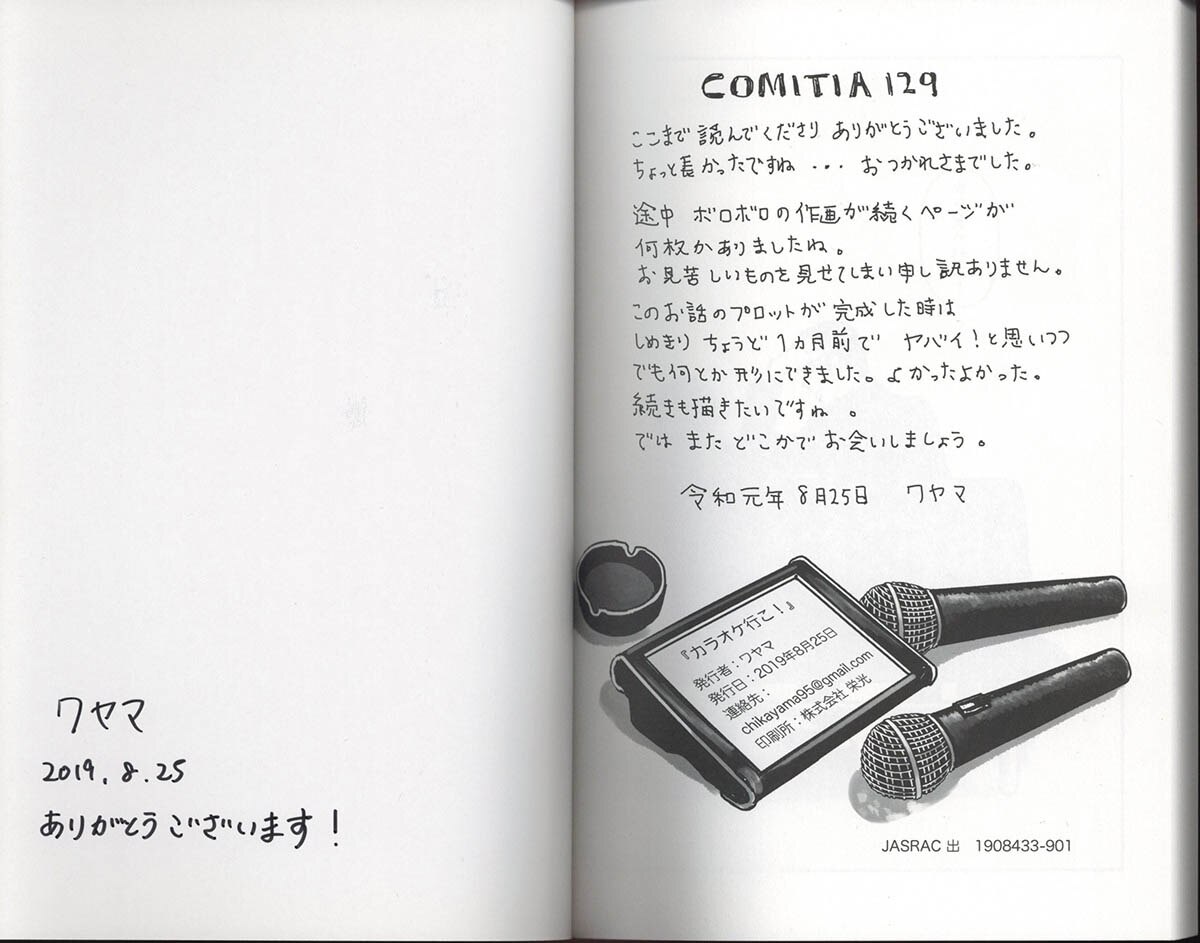 ワヤマ
2019.8.25
ありがとうございます！
COMITIA 129
ここまで読んでくださりありがとうございました。
ちょっと長かったですね・・・おつかれさまでした。
途中ボロボロの作画が続くページが
何枚かありましたね。
お見苦しいものを見せてしまい申し訳ありません。
このお話のプロットが完成した時は
しめきりちょうど1ヵ月前でヤバイ！と思いつつ
でも何とか形にできました。よかったよかった。
続きも描きたいですね。
ではまたどこかでお会いしましょう。
令和元年8月25日 ワヤマ
『カラオケ行こ！』
発行者：ワヤマ
発行日：2019年8月25日
連絡先：
chikayama95@gmail.com
印刷所：株式会社 栄光
JASRAC 出 1908433-901